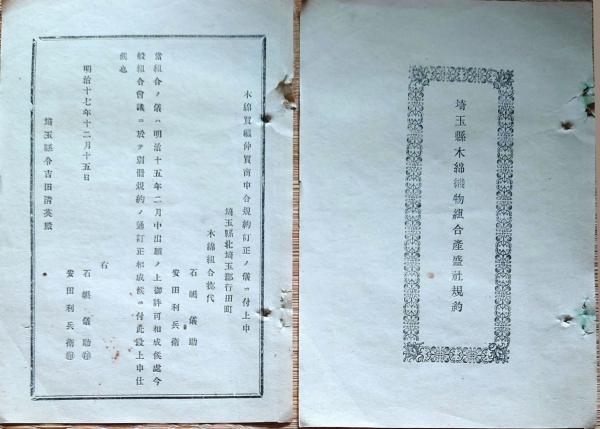 埼玉縣木綿織物組合產盛社規約
木綿買繼仲買商申合規約訂正ノ儀ニ付上申
埼玉縣北埼玉郡行田町
木綿組合惣代
石嶋儀助
安田利兵衞
當組合ノ儀ハ明治十五年二月中出願ノ上御許可相成候處今
般組合會議ニ於テ別冊規約ノ通訂正相成候ニ付此段上申仕
候也
右
明治十七年十二月十五日
石嶋儀助㊞
安田利兵衞㊞
埼玉縣令吉田淸英殿